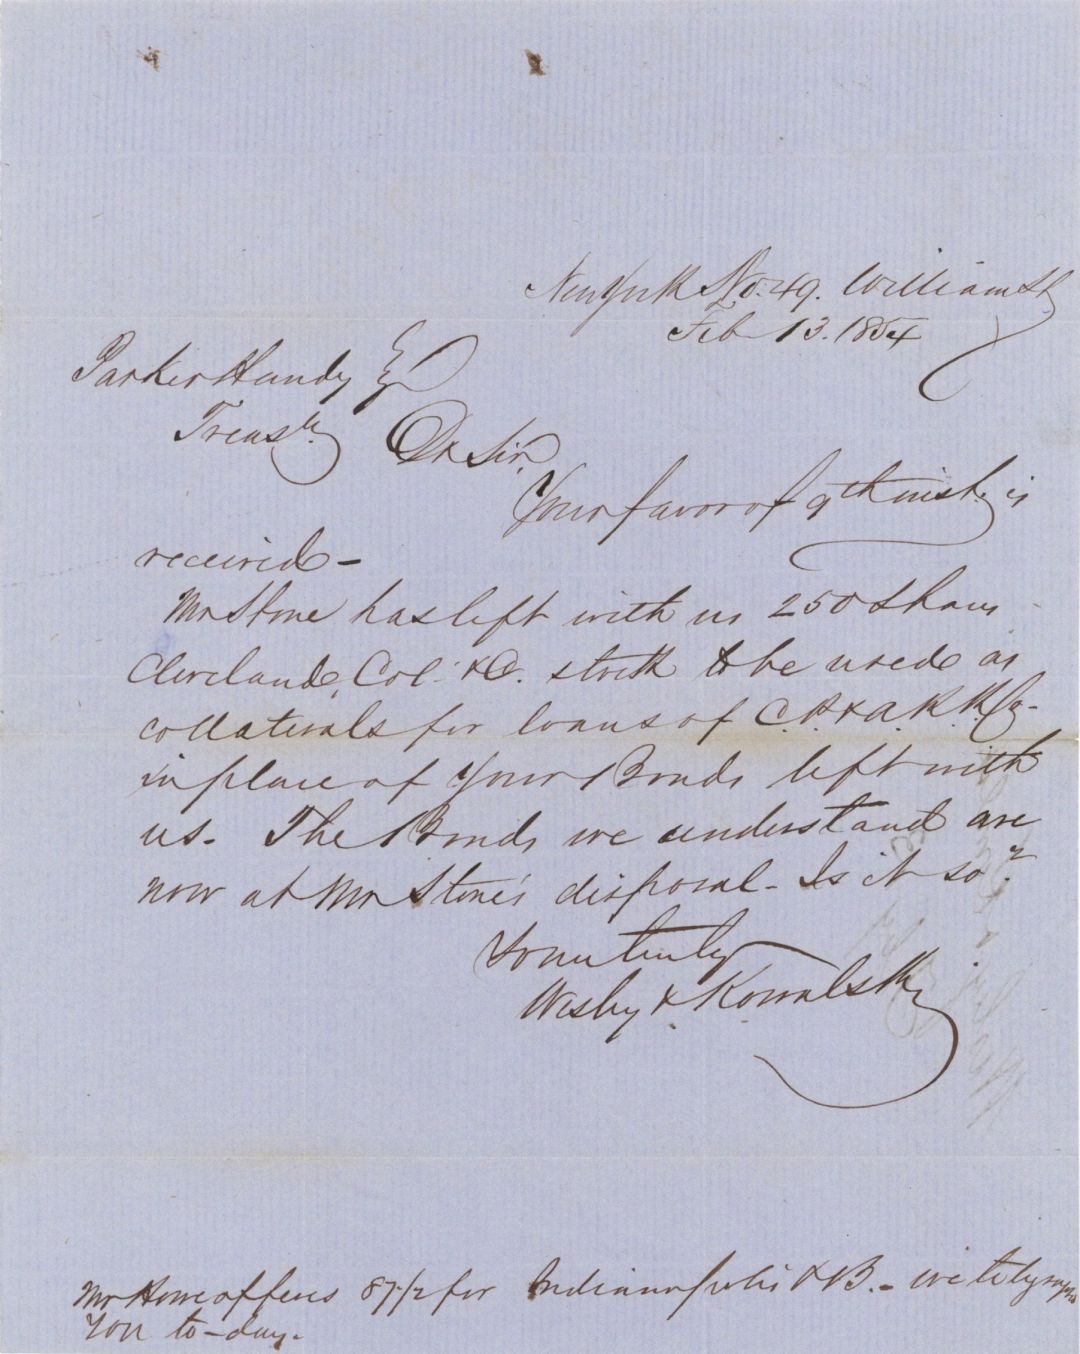 New York No. 49. William St.
Feb 13. 1854
Parker Handy Esq
Treasr. Dr Sir,
Your favor of 9th inst. is
received -
Mr Stone has left with us 250 Shares
Cleveland, Col. & C. stock to be used as
collaterals for loans of C. P. & A. R. R. Co.
in place of your Bonds left with
us. The Bonds we understand are
now at Mr Stone's disposal - Is it so?
Yours truly
& Kowalsky
Mr Howe offers 87 1/2 for Indianapolis & B. - we telegraphed
you to-day.